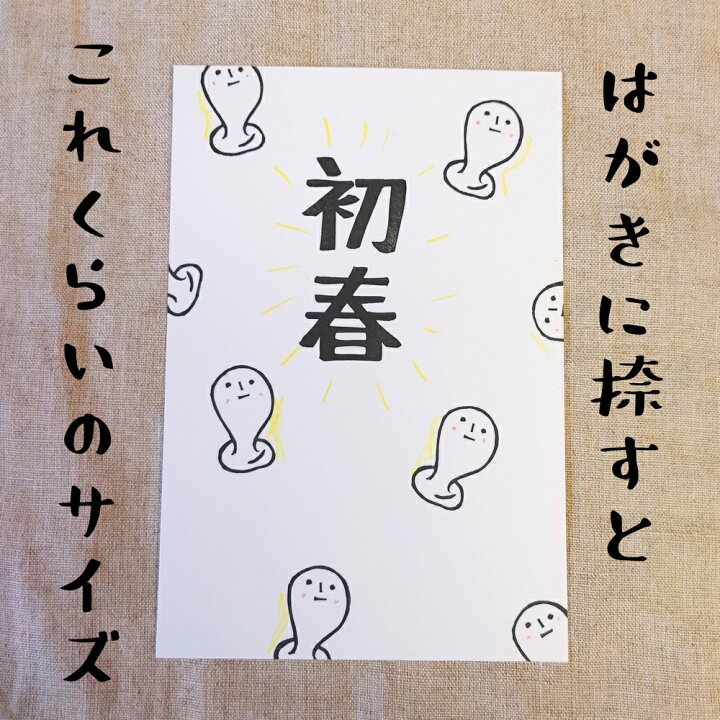 はがきに捺すと
初春
これくらいのサイズ